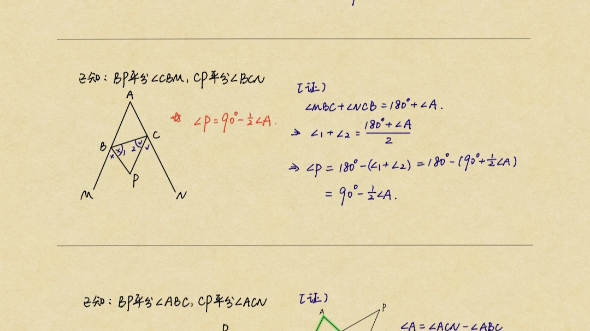 已知：BP平分∠CBM，CP平分∠BCN
A
B
C
1
2
P
M
N
☆ ∠P=90°-½∠A.
[证]
∠MBC+∠NCB=180°+∠A.
⇒ ∠1+∠2=(180°+∠A)/2
⇒ ∠P=180°-(∠1+∠2)=180°-(90°+½∠A)
=90°-½∠A.
已知：BP平分∠ABC，CP平分∠ACN
[证]
A
P
∠A=∠ACN-∠ABC